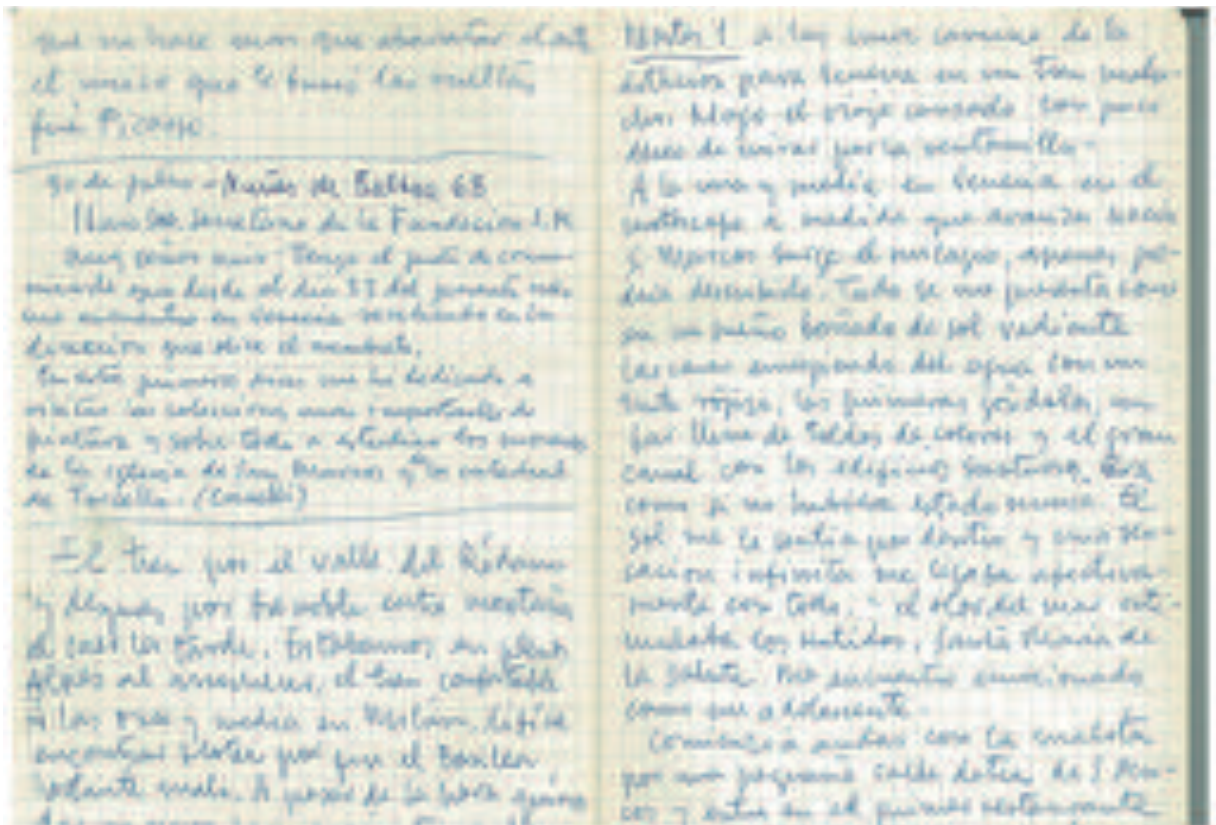 que no hace más que
el único que le
fué Picasso.
30 de julio - Núñez de Balboa 68
Ilmo Sr. Secretario de la Fundación J.M
muy señor mío: Tengo el gusto de comu-
nicarle que desde el día 11 del presente mes
me encuentro en Venecia residiendo en la
dirección que dice el membrete.
En estos primeros días me he dedicado a
visitar las colecciones más importantes de
pintura y sobre todo a estudiar los mosaicos
de la iglesia de San Marcos y de la catedral
de Torcello. (Canaletto)
El tren por el valle del Ródano
y después por Grenoble entre montañas
al caer la tarde. Entrábamos en plenos
Alpes al anochecer, el tren
a las once y media en Milán. Difícil
encontrar hotel por que el
volante A pesar de la hora
Martes 1 a las once camino de la
estación para tenerme en un tren
Hago el viaje cansado con poco
deseo de mirar por la ventanilla.
A la una y media en Venecia en el
motoscafo a medida que avanza hacia
S. Marcos surge el milagro, apenas po-
día describirlo. Todo se me presenta como
en un sueño bañado de sol radiante
las casas emergiendo del agua con un
tinte rojizo, las primeras góndolas, un
bar lleno de toldos de colores y el gran
canal con los edificios suntuosos, era
como si no hubiera estado nunca. El
sol me le sentía por dentro y una sen-
sación infinita me ligaba afectiva-
mente con todo, el olor del mar esti-
mulaba los sentidos, Santa María de
la Salute. Me encuentro emocionado
como un adolescente.
Comienzo a andar con la maleta
por una pequeña calle detrás de S. Mar-
cos y entro en el primer restaurante